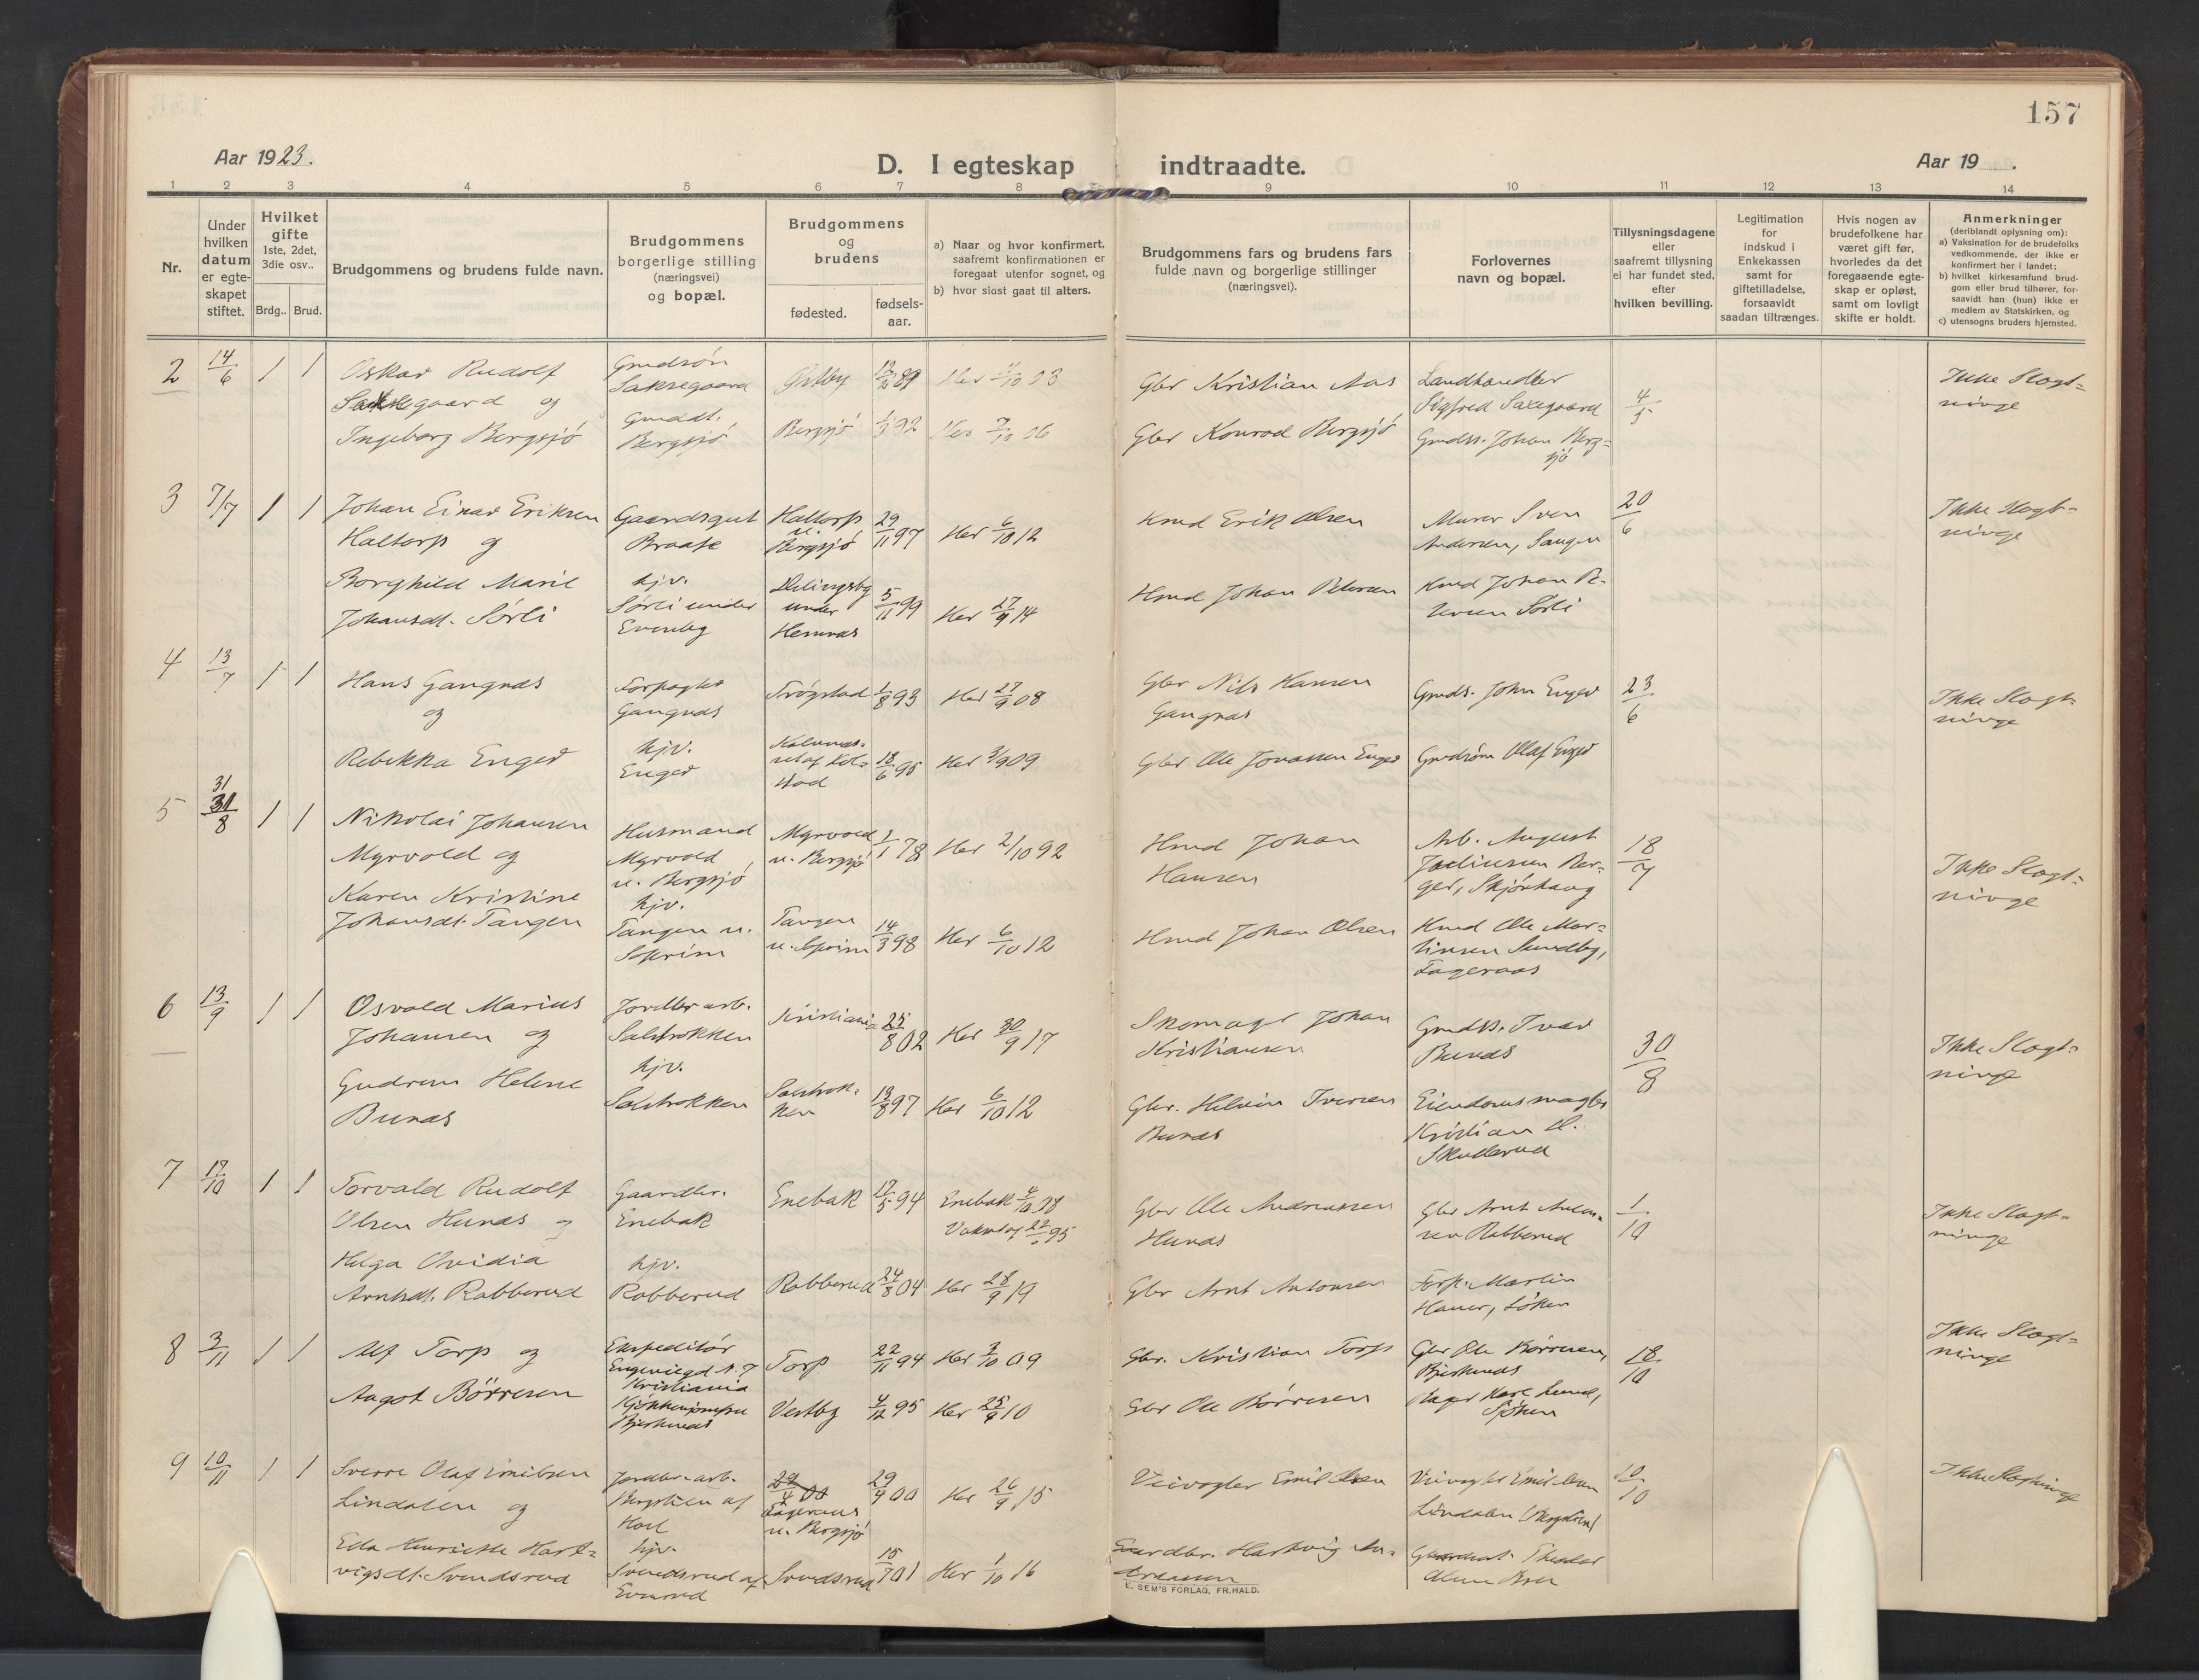 157
Aar 1923.
D. I egteskap indtraadte.
Aar 19
1 2 3 4 5 6 7 8 9 10 11 12 13 14
Nr.
Under
hvilken
datum
er egte-
skapet
stiftet.
Hvilket
gifte
1ste, 2det,
3die osv..
Brdg.. Brud.
Brudgommens og brudens fulde navn.
Brudgommens
borgerlige stilling
(næringsvei)
og bopæl.
Brudgommens
og
brudens
fødested.
fødsels-
aar.
a) Naar og hvor konfirmert,
saafremt konfirmationen er
foregaat utenfor sognet, og
b) hvor sidst gaat til alters.
Brudgommens fars og brudens fars
fulde navn og borgerlige stillinger
(næringsvei).
Forlovernes
navn og bopæl.
Tillysningsdagene
eller
saafremt tillysning
ei har fundet sted,
efter
hvilken bevilling.
Legitimation
for
indskud i
Enkekassen
samt for
giftetilladelse,
forsaavidt
saadan tiltrænges.
Hvis nogen av
brudefolkene har
været gift før,
hvorledes da det
foregaaende egte-
skap er opløst,
samt om lovligt
skifte er holdt.
Anmerkninger
(deriblandt oplysning om):
a) Vaksination for de brudefolks
vedkommende, der ikke er
konfirmert her i landet;
b) hvilket kirkesamfund brud-
gom eller brud tilhører, for-
saavidt han (hun) ikke er
medlem av Statskirken, og
c) utensogns bruders hjemsted.
2 14/6 1 1
Oskar Rudolf
Saksegaard og
Ingeborg Bergsjö
Grndsøn
Saksegaard
Grnddt.
Bergsjö
Østby
Bergsjö
Her 7/10 06
Gbr Kristian Aas
Gbr Konrad Bergsjö
Landhandler
Sigfred Saxegaard
Grndss. Johan Berg=
sjö
4/5
Ikke Slegt=
ninge
3 7/7 1 1
Johan Einar Eriksen
Haltorp og
Borghild Marie
Johansdt. Sørli
Gaardsgut
Braate
hjv.
Sørli under
Evenby
Haltorp
u.
Bergsjö
under
Hemnæs
29/11 97
5/11 99
Her 6/10 12
Her 27/9 14
Hmd Erik Olsen
Hmd Johan Petersen
Murer Sven
Andersen, Saugen
Hmd Johan Pe-
tersen Sørli
20/6
Ikke Slegt=
ninge
4 13/7 1 1
Hans Gangnæs
og
Rebekka Enger
Forpagter
Gangnæs
hjv.
Enger
Trøgstad
1/8 93
18/6 95
Her 27/9 08
Her 3/9 09
Gbr Nils Hansen
Gangnæs
Gbr Ole Jonassen Enger
Grnds. John Enger
Grndsøn Olaf Enger
23/6
Ikke Slegt=
ninge
5 31/8 1 1
Nikolai Johansen
Myrvold og
Karen Kristine
Johansdt. Tangen
Husmand
Myrvold
u. Bergsjö
hjv.
Tangen u.
Myrvold
u. Bergsjö
Tangen
1/1 78
14/3 98
Her 2/10 92
Her 6/10 12
Hmd Johan
Hansen
Hmd Johan Olsen
Arb. August
Juliussen Ber-
ger, Skjønhaug
Hmd Ole Mar=
tinsen Sundby,
Fageraas
18/7
Ikke Slegt=
ninge
6 13/9 1 1
Osvald Marius
Johansen og
Gudrun Helene
Bunæs
Jordbr arb.
Solstrokken
hjv.
Solstrokken
Kristiania
25/8 02
13/8 97
Her 30/9 17
Her 6/10 12
Skomager Johan
Kristiansen
Gbr. Helvin Iversen
Bunæs
Grndss. Ivar
Bunæs
Eiendomsmægler
Kristian H.
Skullerud
30/8
Ikke Slegt=
ninge
7 17/10 1 1
Torvald Rudolf
Olsen Hunæs og
Helga Ovidia
Arntsdt. Rabberud
Gaardbr.
Enebak
hjv.
Rabberud
Enebak
Rabberud
17/5 94
24/8 04
Enebak 4/10 08
Her 28/9 19
Gbr Ole Andreassen
Hunæs
Gbr Arnt Antonsen
Gbr Arnt Anton=
sen Rabberud
Forp. Martin
Haner, Löken
1/10
Ikke Slegt=
ninge
8 3/11 1 1
Alf Torp og
Aagot Börresen
Ekspeditör
Kristiania
Bjerknæs
Torp
Vestby
22/11 94
4/12 95
Her 3/10 09
Her 25/9 10
Gbr. Kristian Torp
Gbr Ole Börresen
Gbr Ole Börresen,
Bjerknæs
Bager Karl Lund,
18/10
Ikke Slegt=
ninge
9 10/11 1 1
Sverre Olaf Emilsen
Lindalen og
Eda Henriette Hart=
vigsdt. Svendsrud
Jordbr-arb.
hjv.
Svendsrud af
29/4 00
u. Bergsjö
Svendsrud
29/4 00
15/7 01
Her 26/9 15
Her 1/10 16
Veivogter Emil Olsen
Gaardbr. Hartvig An=
dreassen
Veivogter Emil Olsen
Lindalen
10/10
Ikke Slegtninge
E. SEM'S FORLAG, FR.HALD.